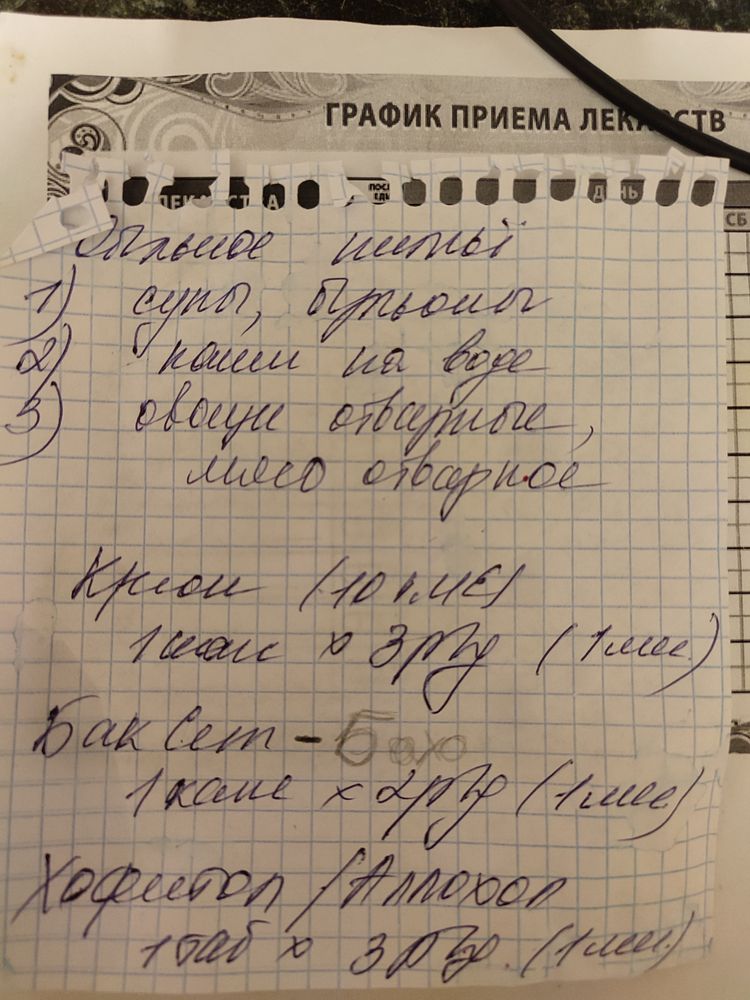 ГРАФИК ПРИЕМА ЛЕКАРСТВ
ДЕНЬ
СБ
Обильное питьё
1) супы, бульоны
2) каши на воде
3) овощи отварные,
мясо отварное
Креон (10 т.МЕ)
1 капс х 3 р/д (1 мес.)
Бак Сет - Бах
1 капс х 2 р/д (1 мес)
Хофитол / Аллохол
1 таб х 3 р/д. (1 мес.)